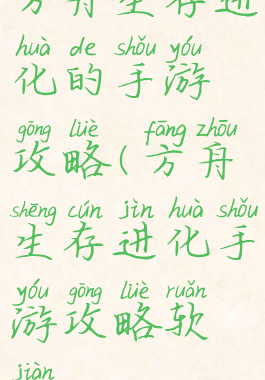 方舟生存进
huà de shǒu yóu
化的手游
gōng lüè fāng zhōu
攻略(方舟
shēng cún jìn huà shǒu
生存进化手
yóu gōng lüè ruǎn
游攻略软
jiàn